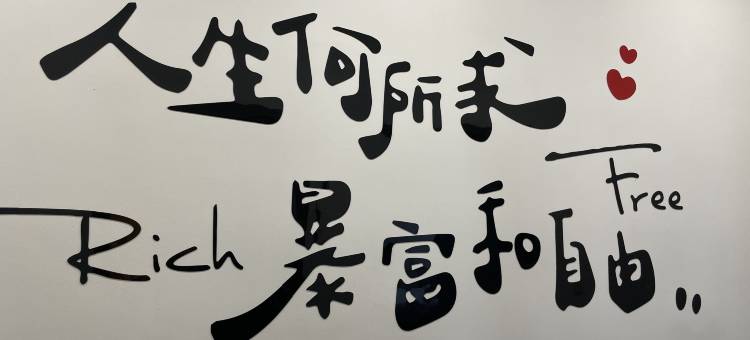 人生何所求
Free
Rich 暴富和自由..